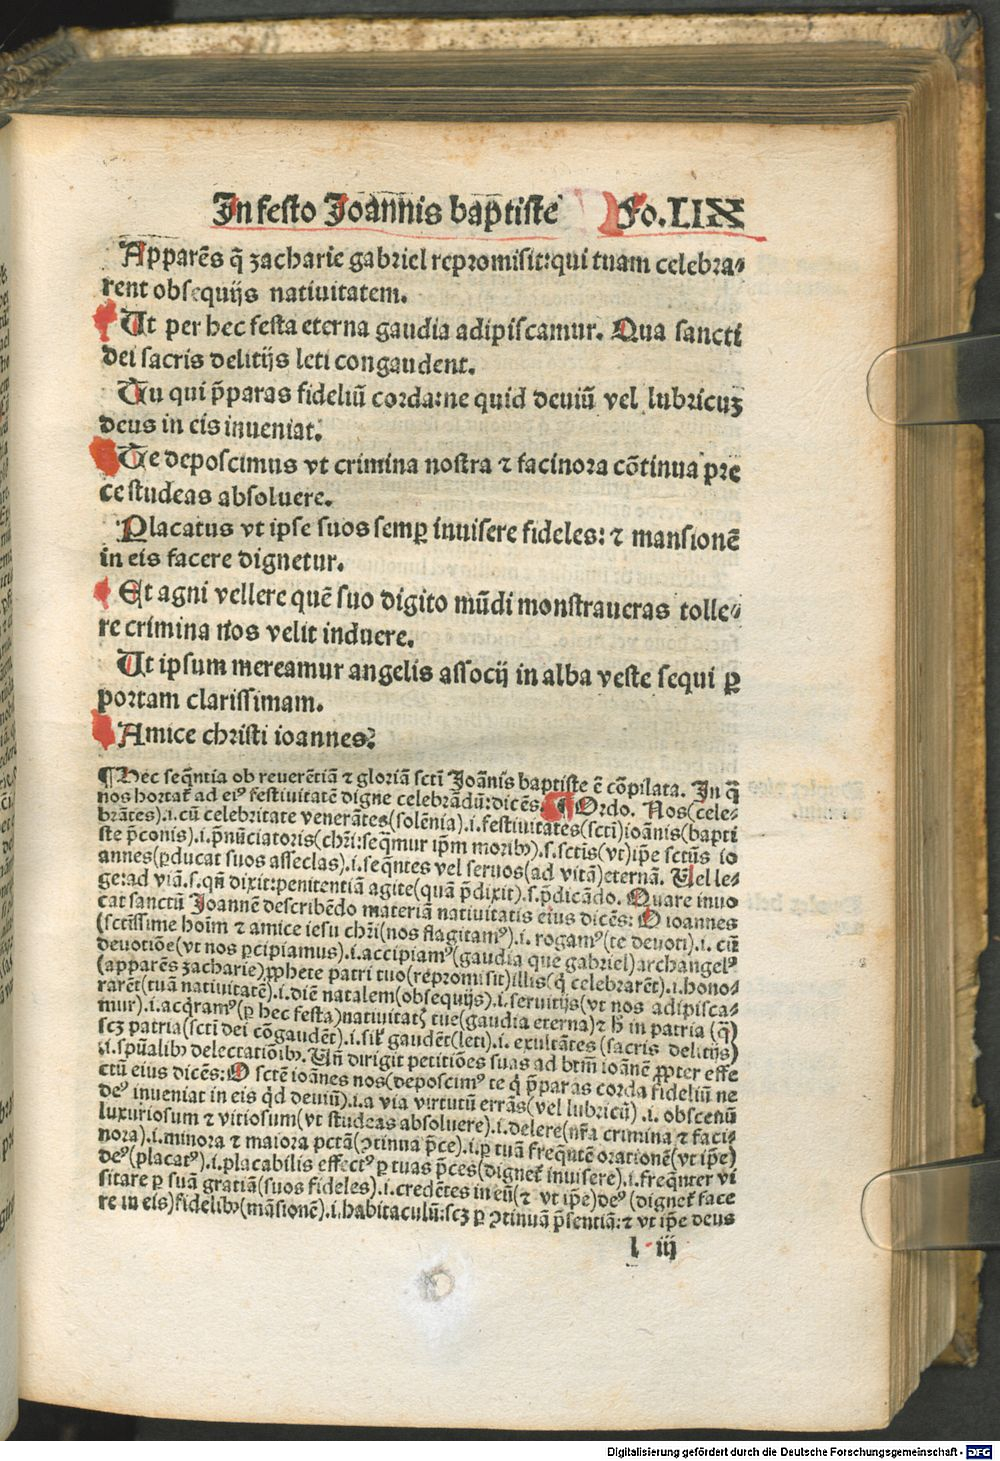 In festo Joannis baptiste Fo.LIX
Apparēs q̄ zacharie gabriel repromisit:qui tuam celebra⸗
rent obsequijs natiuitatem.
Ut per hec festa eterna gaudia adipiscamur. Qua sancti
dei sacris delitijs leti congaudent.
Tu qui p̄paras fideliū corda:ne quid deuiū vel lubricuꝫ
deus in eis inueniat.
Te deposcimus vt crimina nostra ⁊ facinora cōtinua pre
ce studeas absoluere.
Placatus vt ipse suos semꝑ inuisere fideles: ⁊ mansionē
in eis facere dignetur.
Et agni vellere quē suo digito mūdi monstraueras tolle⸗
re crimina nos velit induere.
Ut ipsum mereamur angelis associj in alba veste sequi ꝑ
portam clarissimam.
Amice christi ioannes.
¶Hec seq̄ntia ob reuerētiā ⁊ gloriā sctī Joānis baptiste ē cōpilata. In q̄
nos hortat᷑ ad eiꝰ festiuitatē digne celebrādū:dicēs. ¶Ordo. Nos(cele⸗
brātes).i.cū celebritate venerātes(solēnia).i.festiuitates(sctī)ioānis(bapti
ste p̄conis).i.p̄nūciatoris(chr̄i:seq̄mur ip̄m moribꝰ).s.sctīs(vt)ip̄e sctūs io
annes(ꝑducat suos asseclas).i.seq̄ntes vel seruos(ad vitā)eternā. Uel le⸗
ge:ad viā.s.qn̄ dixit:penitentiā agite(quā p̄dixit).s.p̄dicādo. Quare inuo
cat sanctū Joannē describēdo materiā natiuitatis eius dicēs: O ioannes
(sctīssime hoīm ⁊ amice iesu chr̄i(nos flagitamꝰ).i. rogamꝰ(te deuoti).i. cū
deuotiōe(vt nos ꝑcipiamus).i.accipiamꝰ(gaudia que gabriel)archangelꝰ
(apparēs zacharie)ꝓphete patri tuo(repromisit)illis(q̇ celebrarēt).i.hono⸗
rarēt(tuā natiuitatē).i.diē natalem(obsequijs).i.seruitijs(vt nos adipisca⸗
mur).i.acq̄ramꝰ(ꝑ hec festa)natiuitatꝭ tue(gaudia eterna)⁊ h̄ in patria (q̄)
scꝫ patria(sctī dei cōgaudēt).i.sil᷑ gaudēt(leti).i. exultātes (sacris delitijs)
.i.spūalibꝰ delectatiōibꝰ. Un̄ dirigit petitiōes suas ad btm̄ ioānē ꝓpter effe
ctū eius dicēs: O sctē ioānes nos(deposcimꝰ te q̇ p̄paras corda fideliū ne
deꝰ inueniat in eis q̇d deuiū).i.a via virtutū errās(vel lubricū) .i. obscenū
luxuriosum ⁊ vitiosum(vt studeas absoluere).i.delere(nr̄a crimina ⁊ faci⸗
nora).i.minora ⁊ maiora pctā(ꝯtinua p̄ce).i.ꝑ tuā frequētē orationē(vt ip̄e)
deꝰ(placatꝰ).i.placabilis effectꝰ ꝑ tuas p̄ces(dignet᷑ inuisere).i.freq̄nter vi
sitare ꝑ suā gratiā(suos fideles).i.credētes in eū(⁊ vt ip̄e)deꝰ (dignet᷑ face
re in eis)fidelibꝰ(māsionē).i.habitaculū:scꝫ ꝑ ꝯtinuā p̄sentiā:⁊ vt ip̄e deus
l iij
Digitalisierung gefördert durch die Deutsche Forschungsgemeinschaft - DFG